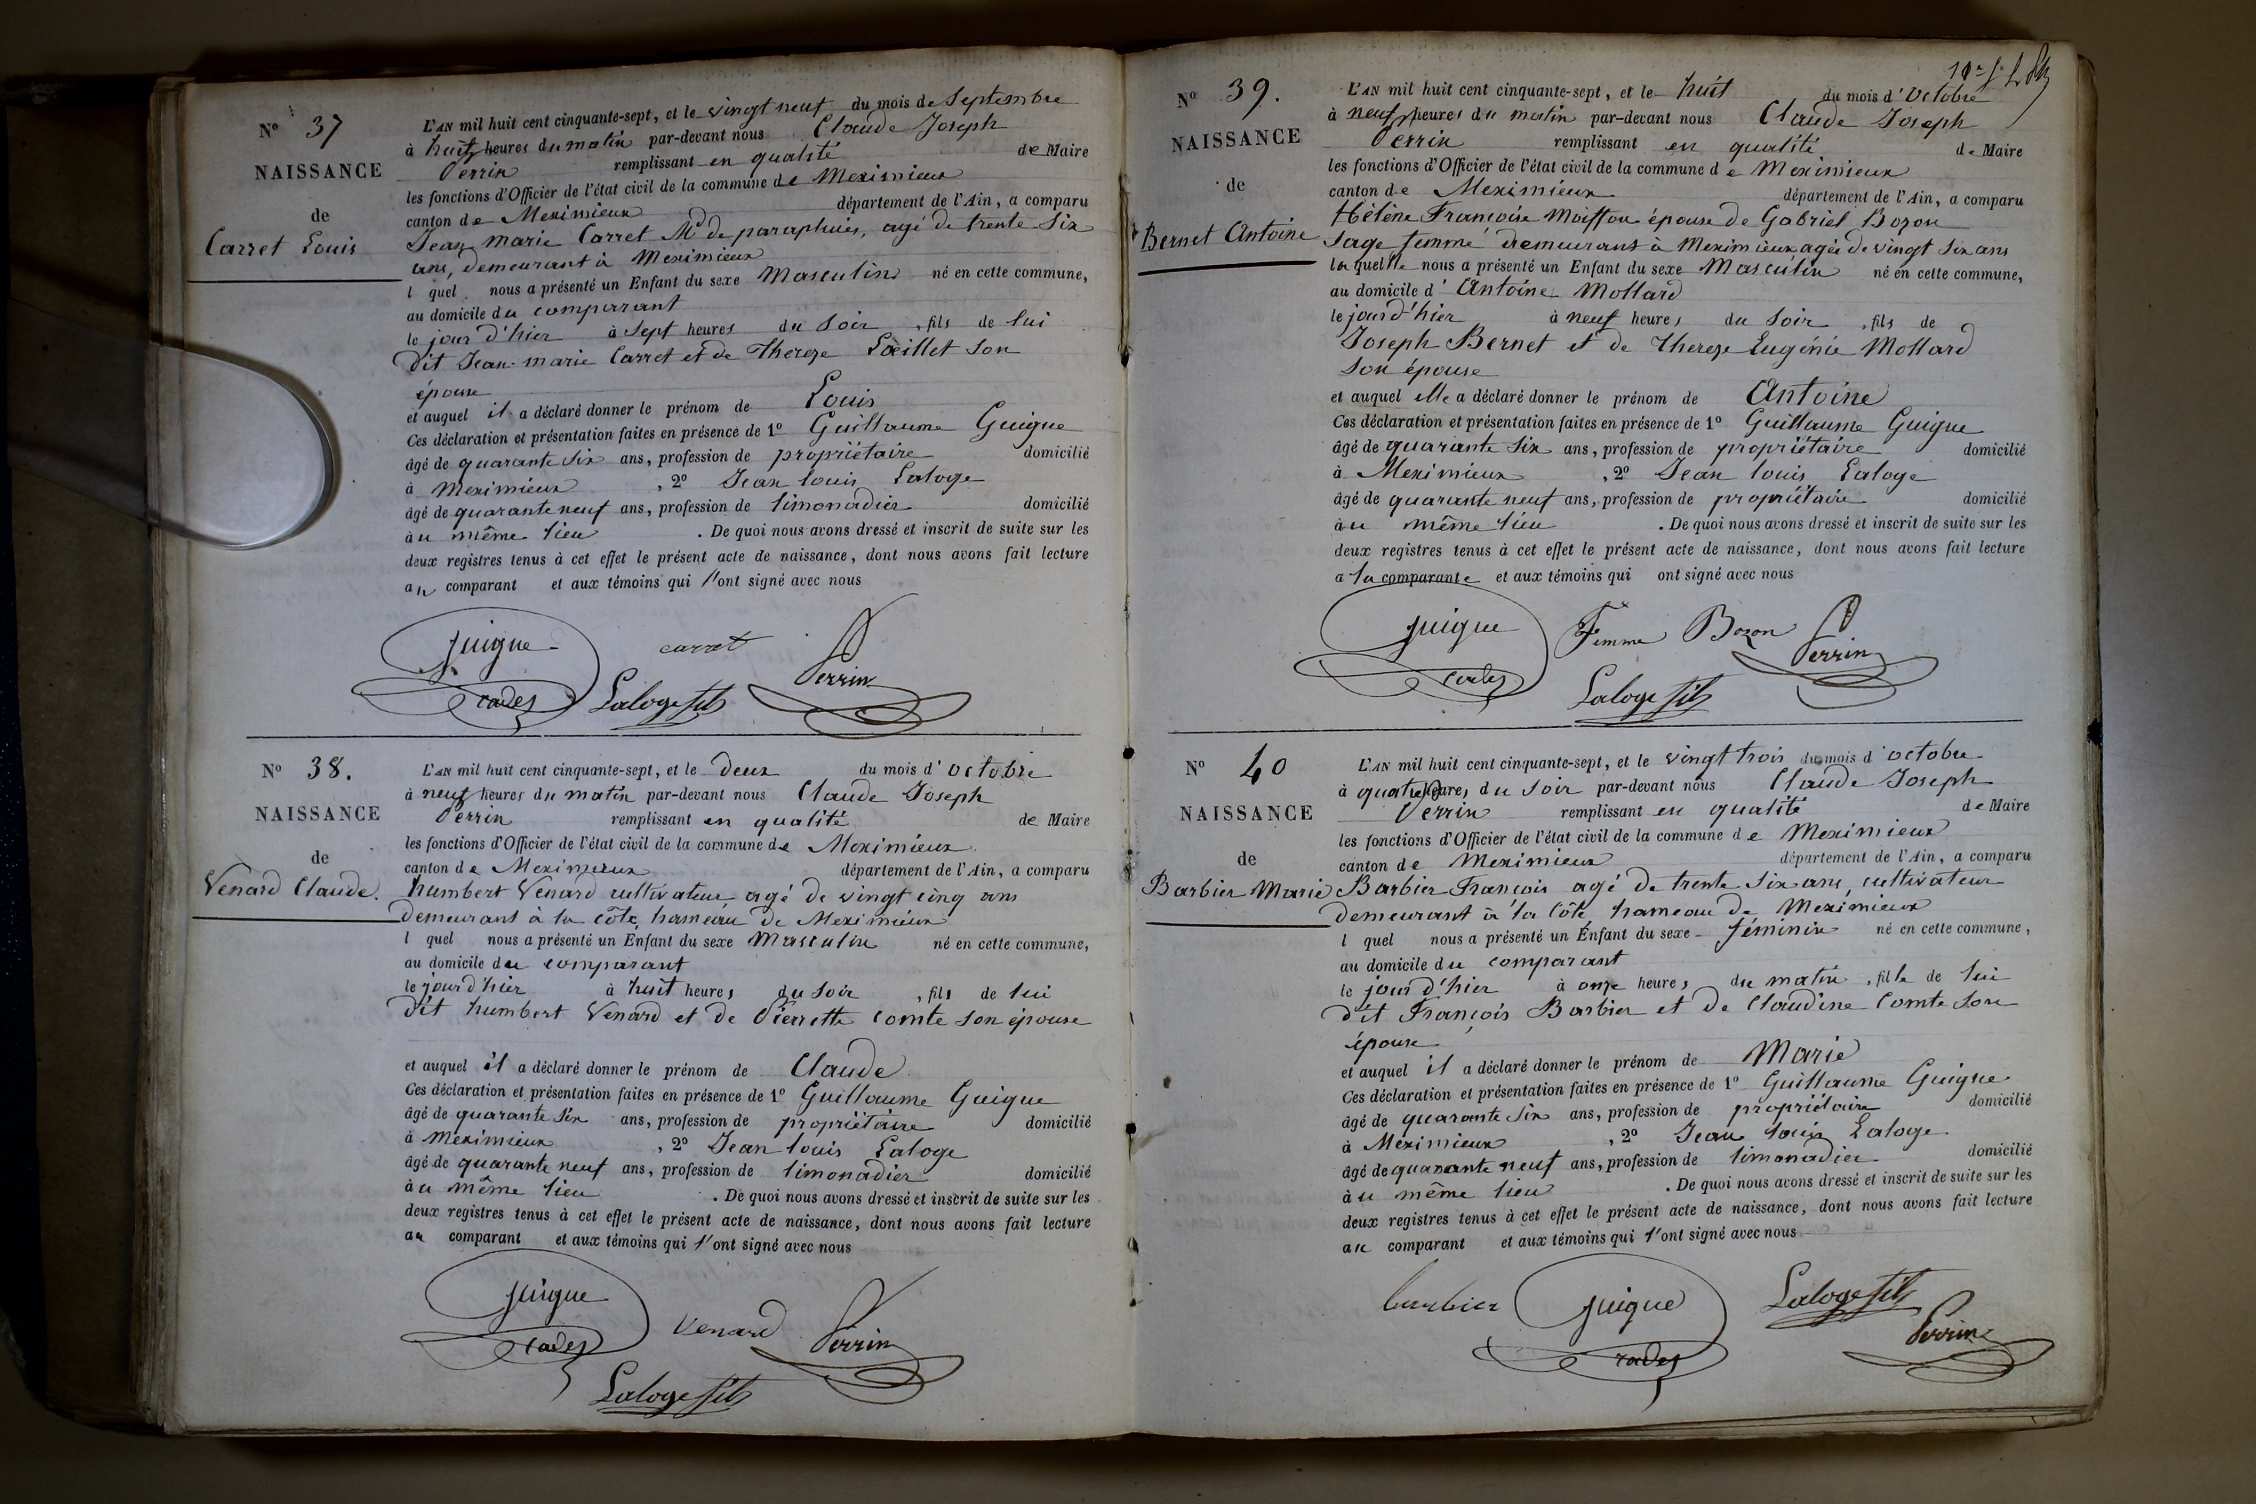 N° 37
NAISSANCE
de
Carret Louis
L'AN mil huit cent cinquante-sept, et le vingt neuf du mois de Septembre
à huit heures du matin par-devant nous Claude Joseph
Perrin remplissant en qualité de Maire
les fonctions d'Officier de l'état civil de la commune de Meximieux
canton de Meximieux département de l'Ain, a comparu
Jean marie Carret Md de parapluies, agé de trente Six
ans, demeurant à Meximieux
l quel nous a présenté un Enfant du sexe Masculin né en cette commune,
au domicile du comparant
le jour d'hier à Sept heures du Soir, fils de lui
dit Jean-marie Carret et de Thereze Lœillet Son
épouse
et auquel il a déclaré donner le prénom de Louis
Ces déclaration et présentation faites en présence de 1° Guillaume Guigue
âgé de quarante Six ans, profession de propriétaire domicilié
à Meximieux, 2° Jean louis Laloge
âgé de quarante neuf ans, profession de limonadier domicilié
àu même lieu. De quoi nous avons dressé et inscrit de suite sur les
deux registres tenus à cet effet le présent acte de naissance, dont nous avons fait lecture
au comparant et aux témoins qui l'ont signé avec nous
guigue carret Perrin
Laloge fils
N° 38.
NAISSANCE
de
Venard Claude.
L'AN mil huit cent cinquante-sept, et le deux du mois d'octobre
à neuf heures du matin par-devant nous Claude Joseph
Perrin remplissant en qualité de Maire
les fonctions d'Officier de l'état civil de la commune de Meximieux
canton de Meximieux département de l'Ain, a comparu
humbert Venard cultivateur agé de vingt cinq ans
demeurant à la côte, hameau de Meximieux
l quel nous a présenté un Enfant du sexe Masculin né en cette commune,
au domicile du comparant
le jour d'hier à huit heures du Soir, fils de lui
dit humbert Venard et de Pierrette Comte Son épouse
et auquel il a déclaré donner le prénom de Claude
Ces déclaration et présentation faites en présence de 1° Guillaume Guigue
âgé de quarante Six ans, profession de propriétaire domicilié
à Meximieux, 2° Jean louis Laloge
âgé de quarante neuf ans, profession de limonadier domicilié
àu même lieu. De quoi nous avons dressé et inscrit de suite sur les
deux registres tenus à cet effet le présent acte de naissance, dont nous avons fait lecture
au comparant et aux témoins qui l'ont signé avec nous
guigue Venard Perrin
Laloge fils
N° 39.
NAISSANCE
de
Bernet Antoine
L'AN mil huit cent cinquante-sept, et le huit du mois d'Octobre
à neuf heures du matin par-devant nous Claude Joseph
Perrin remplissant en qualité de Maire
les fonctions d'Officier de l'état civil de la commune de Meximieux
canton de Meximieux département de l'Ain, a comparu
Hélène Françoise Moiffon épouse de Gabriel Bozon
Sage femme demeurant à Meximieux agée de vingt Six ans
laquelle nous a présenté un Enfant du sexe Masculin né en cette commune,
au domicile d'Antoine Mottard
le jour d'hier à neuf heures du Soir, fils de
Joseph Bernet et de Thereze Eugénie Mottard
Son épouse
et auquel elle a déclaré donner le prénom de Antoine
Ces déclaration et présentation faites en présence de 1° Guillaume Guigue
âgé de quarante Six ans, profession de propriétaire domicilié
à Meximieux, 2° Jean louis Laloge
âgé de quarante neuf ans, profession de propriétaire domicilié
àu même lieu. De quoi nous avons dressé et inscrit de suite sur les
deux registres tenus à cet effet le présent acte de naissance, dont nous avons fait lecture
a la comparante et aux témoins qui ont signé avec nous
guigue Femme Bozon Perrin
Laloge fils
N° 40
NAISSANCE
de
Barbier Marie
L'AN mil huit cent cinquante-sept, et le vingt trois du mois d'octobre
à quatre heures du Soir par-devant nous Claude Joseph
Perrin remplissant en qualité de Maire
les fonctions d'Officier de l'état civil de la commune de Meximieux
canton de Meximieux département de l'Ain, a comparu
Barbier François agé de trente Six ans, cultivateur
demeurant à la Côte, hameau de Meximieux
l quel nous a présenté un Enfant du sexe féminin né en cette commune,
au domicile du comparant
le jour d'hier à onze heures du matin, fille de lui
dit François Barbier et de Claudine Comte Son
épouse
et auquel il a déclaré donner le prénom de Marie
Ces déclaration et présentation faites en présence de 1° Guillaume Guigue
âgé de quarante Six ans, profession de propriétaire domicilié
à Meximieux, 2° Jean louis Laloge
âgé de quarante neuf ans, profession de limonadier domicilié
àu même lieu. De quoi nous avons dressé et inscrit de suite sur les
deux registres tenus à cet effet le présent acte de naissance, dont nous avons fait lecture
au comparant et aux témoins qui l'ont signé avec nous
barbier guigue Laloge fils
Perrin